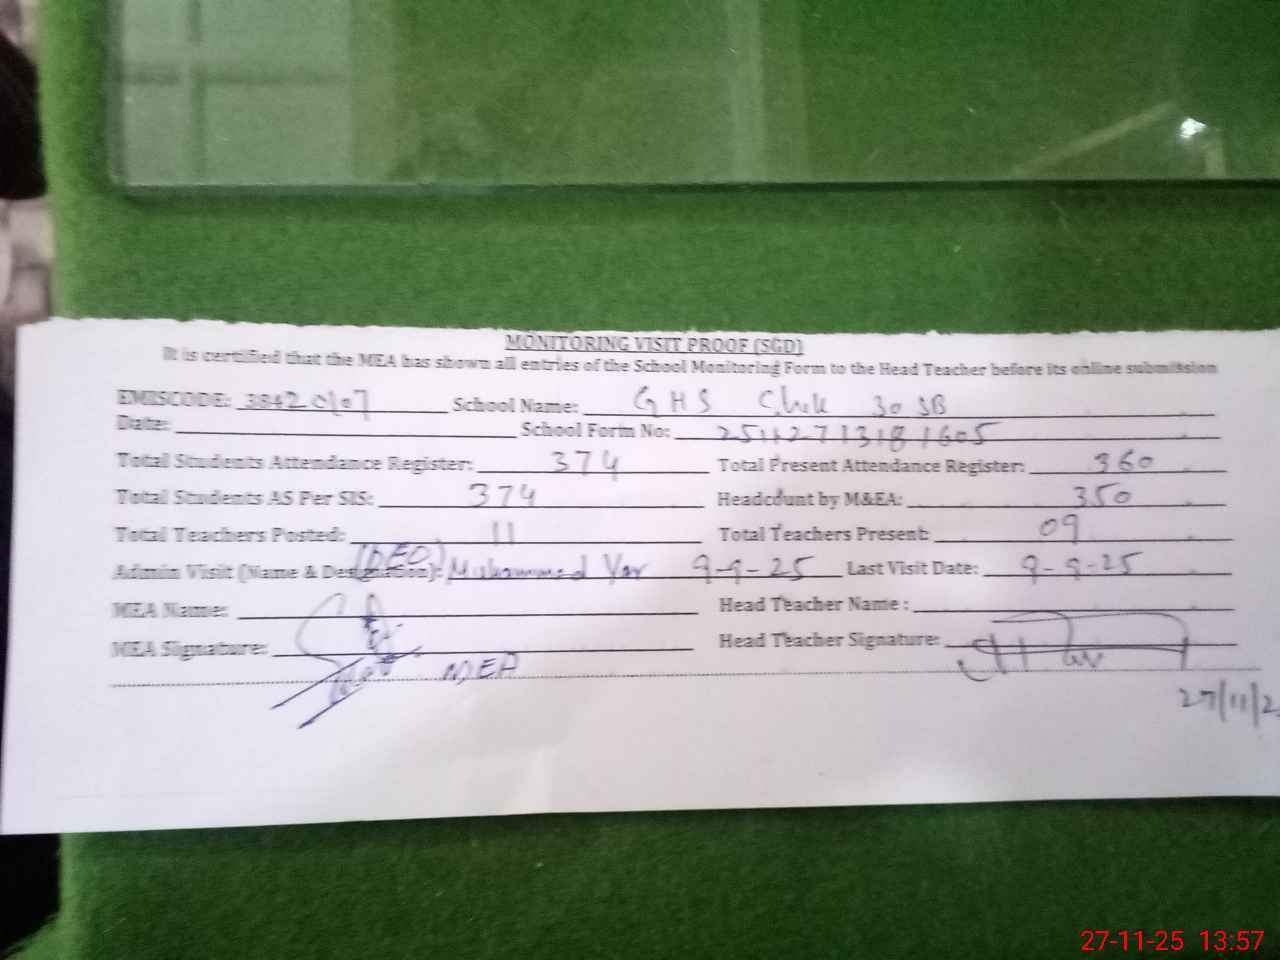 MONITORING VISIT PROOF (SGD)
It is certified that the MEA has shown all entries of the School Monitoring Form to the Head Teacher before its online submission
EMISCODE: 38420107 School Name: GHS Chak 30 SB
Date: School Form No: 251127131816​05
Total Students Attendance Register: 374 Total Present Attendance Register: 360
Total Students AS Per SIS: 374 Headcount by M&EA: 350
Total Teachers Posted: 11 Total Teachers Present: 09
(DEO)
Admin Visit (Name & Designation): Muhammad Yar 9-9-25 Last Visit Date: 9-9-25
MEA Name: Head Teacher Name :
MEA Signature: Head Teacher Signature:
MEA
27/11/2
27-11-25 13:57